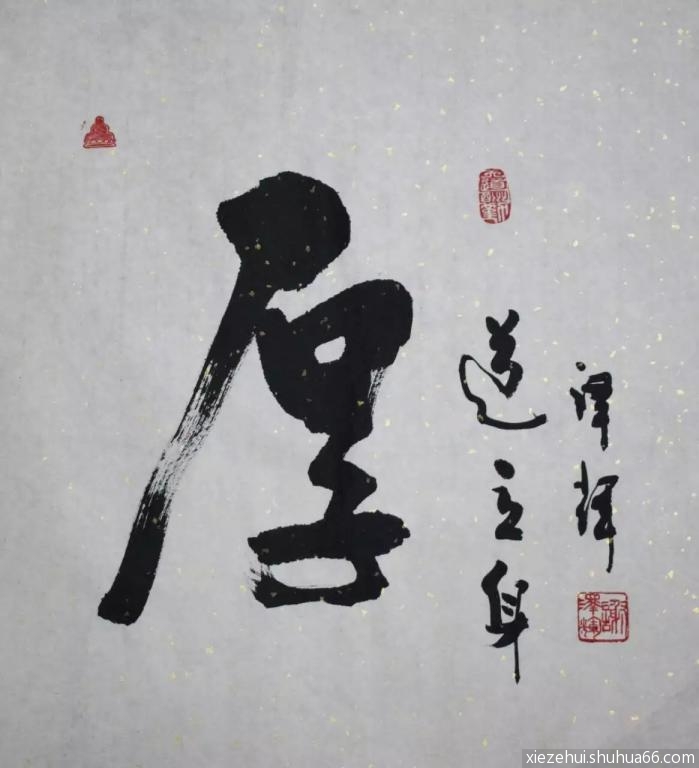 厚
道立身
泽辉
謝澤輝
xiezehui.shuhua66.com